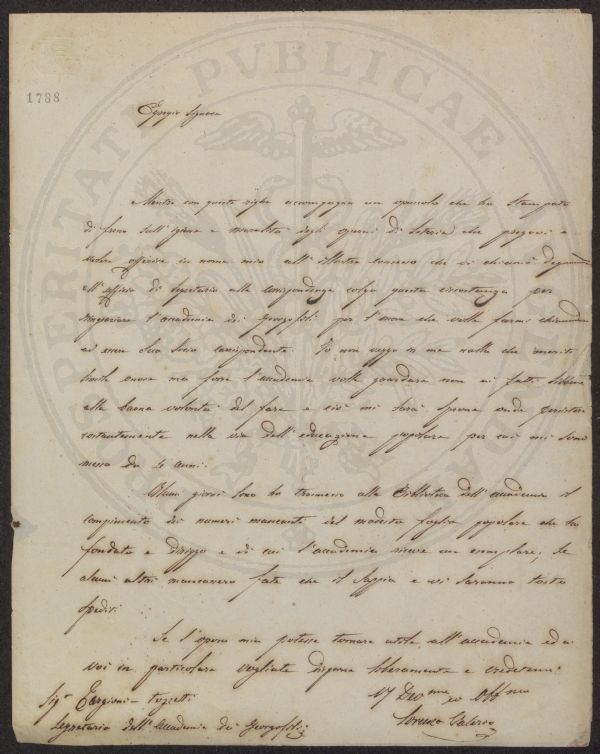 PROSPERITATI PVBLICAE
1788
Egregio Signore
Mentre con queste righe accompagno un opuscolo che ho stampato
di fresco sull'igiene e moralità degli operai di seterie che pregovi a
volere offerire in nome mio all'illustre consesso che vi chiamò degnamente
all'uffizio di Segretario alle corrispondenze colgo questa circostanza per
ringraziare l'accademia dei Georgofili per l'onore che volle farmi chiamandomi
ad esser Suo Socio corrispondente. Io non veggo in me nulla che meriti
simile onore ma forse l'accademia volle guardare non ai fatti sibbene
alla buona volontà del fare e ciò mi sarà sprone onde persistere
costantemente nella via dell'educazione popolare per cui mi sono
messo da 4 anni.
Alcuni giorni sono ho trasmesso alla Biblioteca dell'accademia il
compimento di numeri mancanti del modesto foglio popolare che ho
fondato e dirigo e di cui l'accademia riceve un esemplare; Se
alcuni altri mancavero fate che il sappia e vi saranno tosto
spediti.
Se l'opera mia potesse tornare utile all'accademia ed a
voi in particolare vogliate disporne liberamente e credetemi
Il V Dev.mo ed Aff.mo
Lorenzo Valerio
Sigr Targioni-Tozzetti
Segretario dell'Accademia dei Georgofili